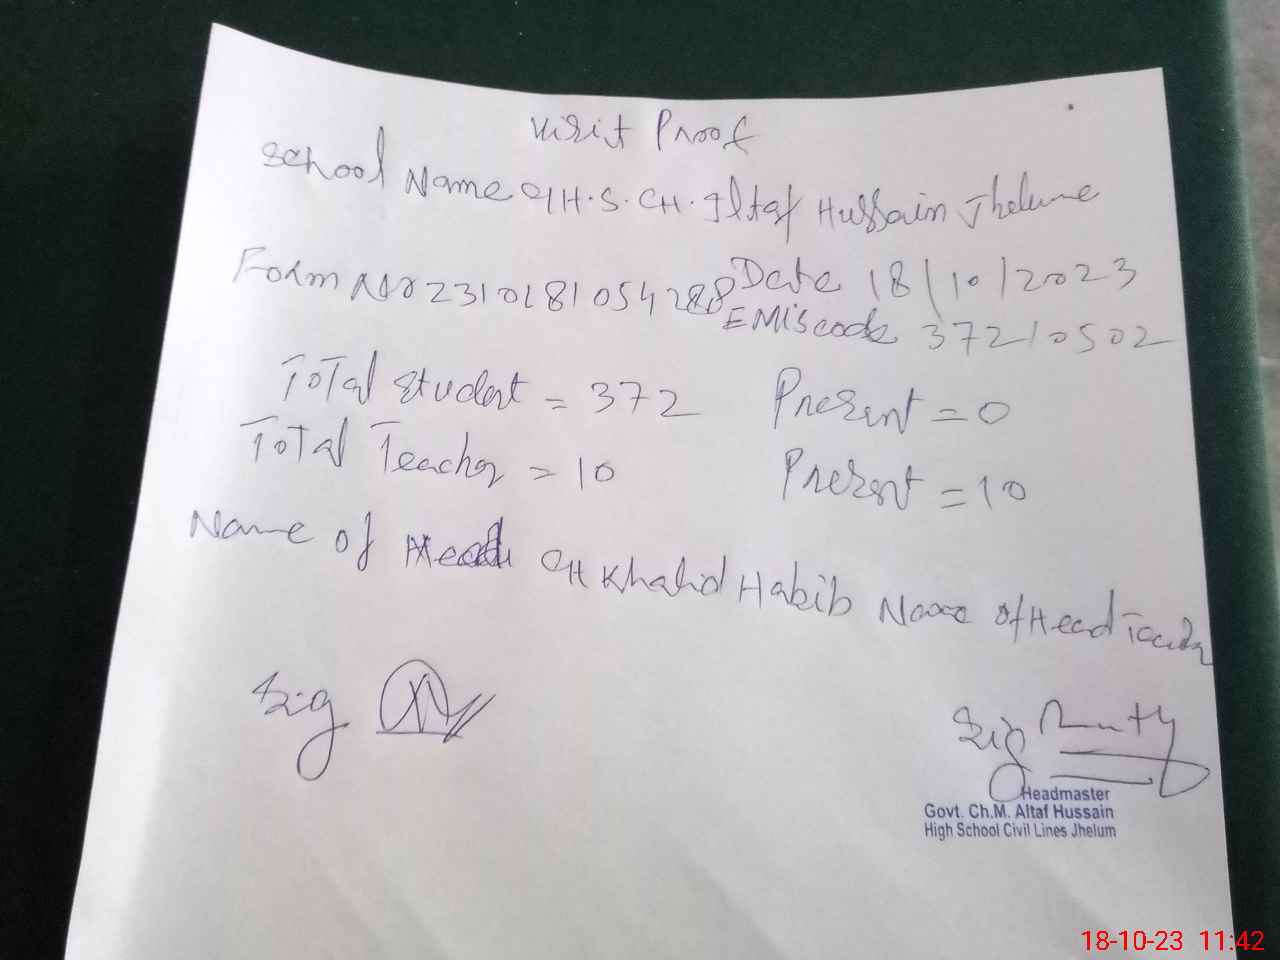 Visit Proof
School Name GH.S.CH.Iltaf Hussain Jhelume
Form No 2310181054288 Date 18/10/2023
EMIS code 37210502
Total Student = 372 Present = 0
Total Teacher = 10 Present = 10
Name of Head CH Khalid Habib Name of Head Teacher
Sig
Sig
Headmaster
Govt. Ch.M. Altaf Hussain
High School Civil Lines Jhelum
18-10-23 11:42